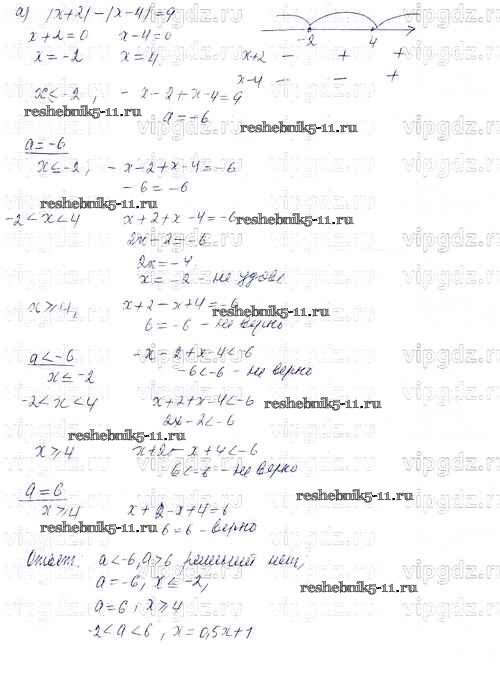 а) |x+2|-|x-4|=a
x+2=0 x-4=0
x=-2 x=4
-2 4
x+2 - + +
x-4 - - +
x≤-2, -x-2+x-4=a
reshebnik5-11.ru
a=-6
reshebnik5-11.ru
a=-6
x≤-2, -x-2+x-4=-6
-6=-6
reshebnik5-11.ru
-2<x<4 x+2+x-4=-6
reshebnik5-11.ru
2x-2=-6
2x=-4
x=-2 - не удовл
x≥4, x+2-x+4=-6
reshebnik5-11.ru
6=-6 - не верно
a<-6 -x-2+x-4<-6
x≤-2 -6<-6 - не верно
-2<x<4 x+2+x-4<-6
reshebnik5-11.ru
2x-2<-6
reshebnik5-11.ru
x≥4 x+2-x+4<-6
6<-6 - не верно
a=6
reshebnik5-11.ru
x≥4 x+2-x+4=6
reshebnik5-11.ru
6=6 - верно
Ответ. a<-6, a>6 решений нет,
a=-6, x≤-2,
reshebnik5-11.ru
a=6, x≥4
-2<a<6, x=0,5x+1
vipgdz.ru